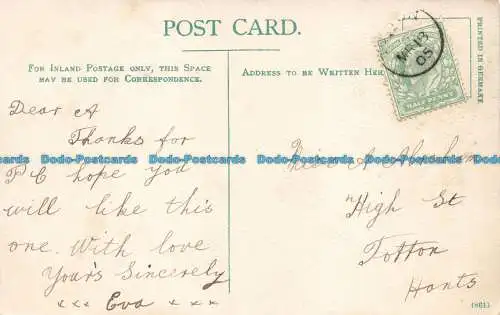 POST CARD.
FOR INLAND POSTAGE ONLY, THIS SPACE
MAY BE USED FOR CORRESPONDENCE.
ADDRESS TO BE WRITTEN HER
PRINTED IN GERMANY
MR 13
05
HALF PENNY
Dear A
Thanks for
P C hope you
will like this
one. With love
Your's Sincerely
x x x Eva x x x
Miss A
High St
Totton
Hants
Dodo-Postcards Dodo-Postcards Dodo-Postcards Dodo-Postcards Dodo-Postcards